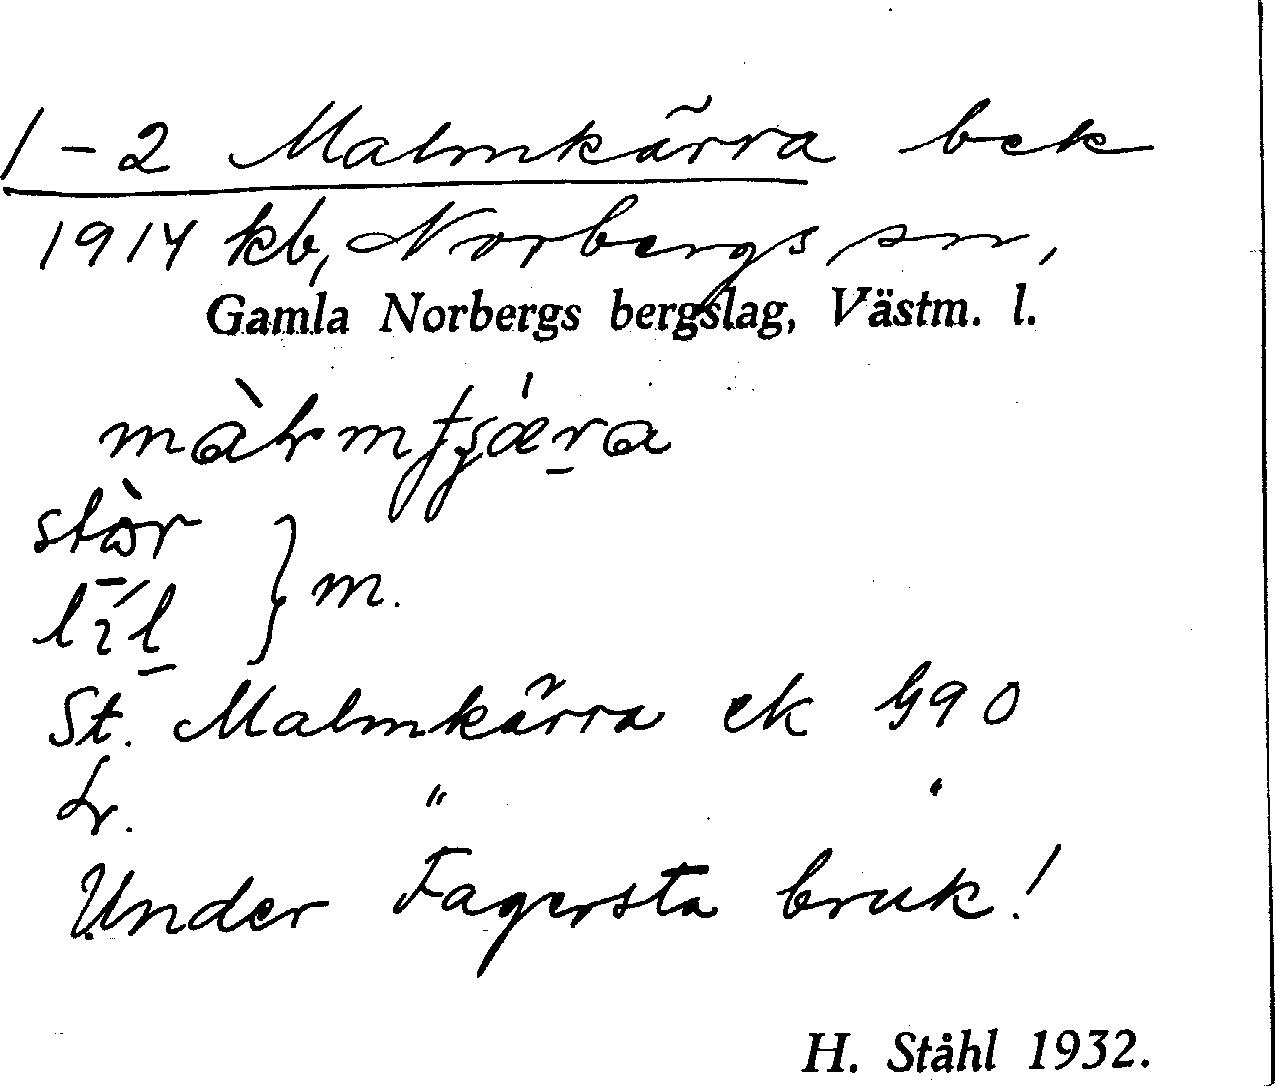 1-2 Malmkärra bek
1914 kb, Norbergs sn,
Gamla Norbergs bergslag, Västm. l.
stòr
lī́l } m.
St. Malmkärra ek G90
L. " "
Under Fagersta bruk!
H. Ståhl 1932.